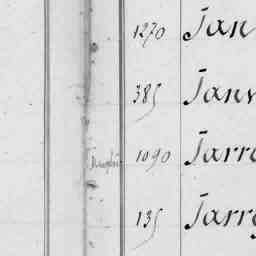 1270 Jan
385 Janv
1090 Jarr
135 Jarry